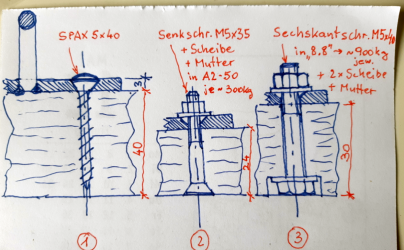 SPAX 5x40
Senkschr. M5x35
+ Scheibe
+ Mutter
in A2-50
je ≈ 300kg
Sechskantschr. M5x40
in „8.8" → ≈ 900kg
jew.
+ 2x Scheibe
+ Mutter
3
40
24
30
1
2
3